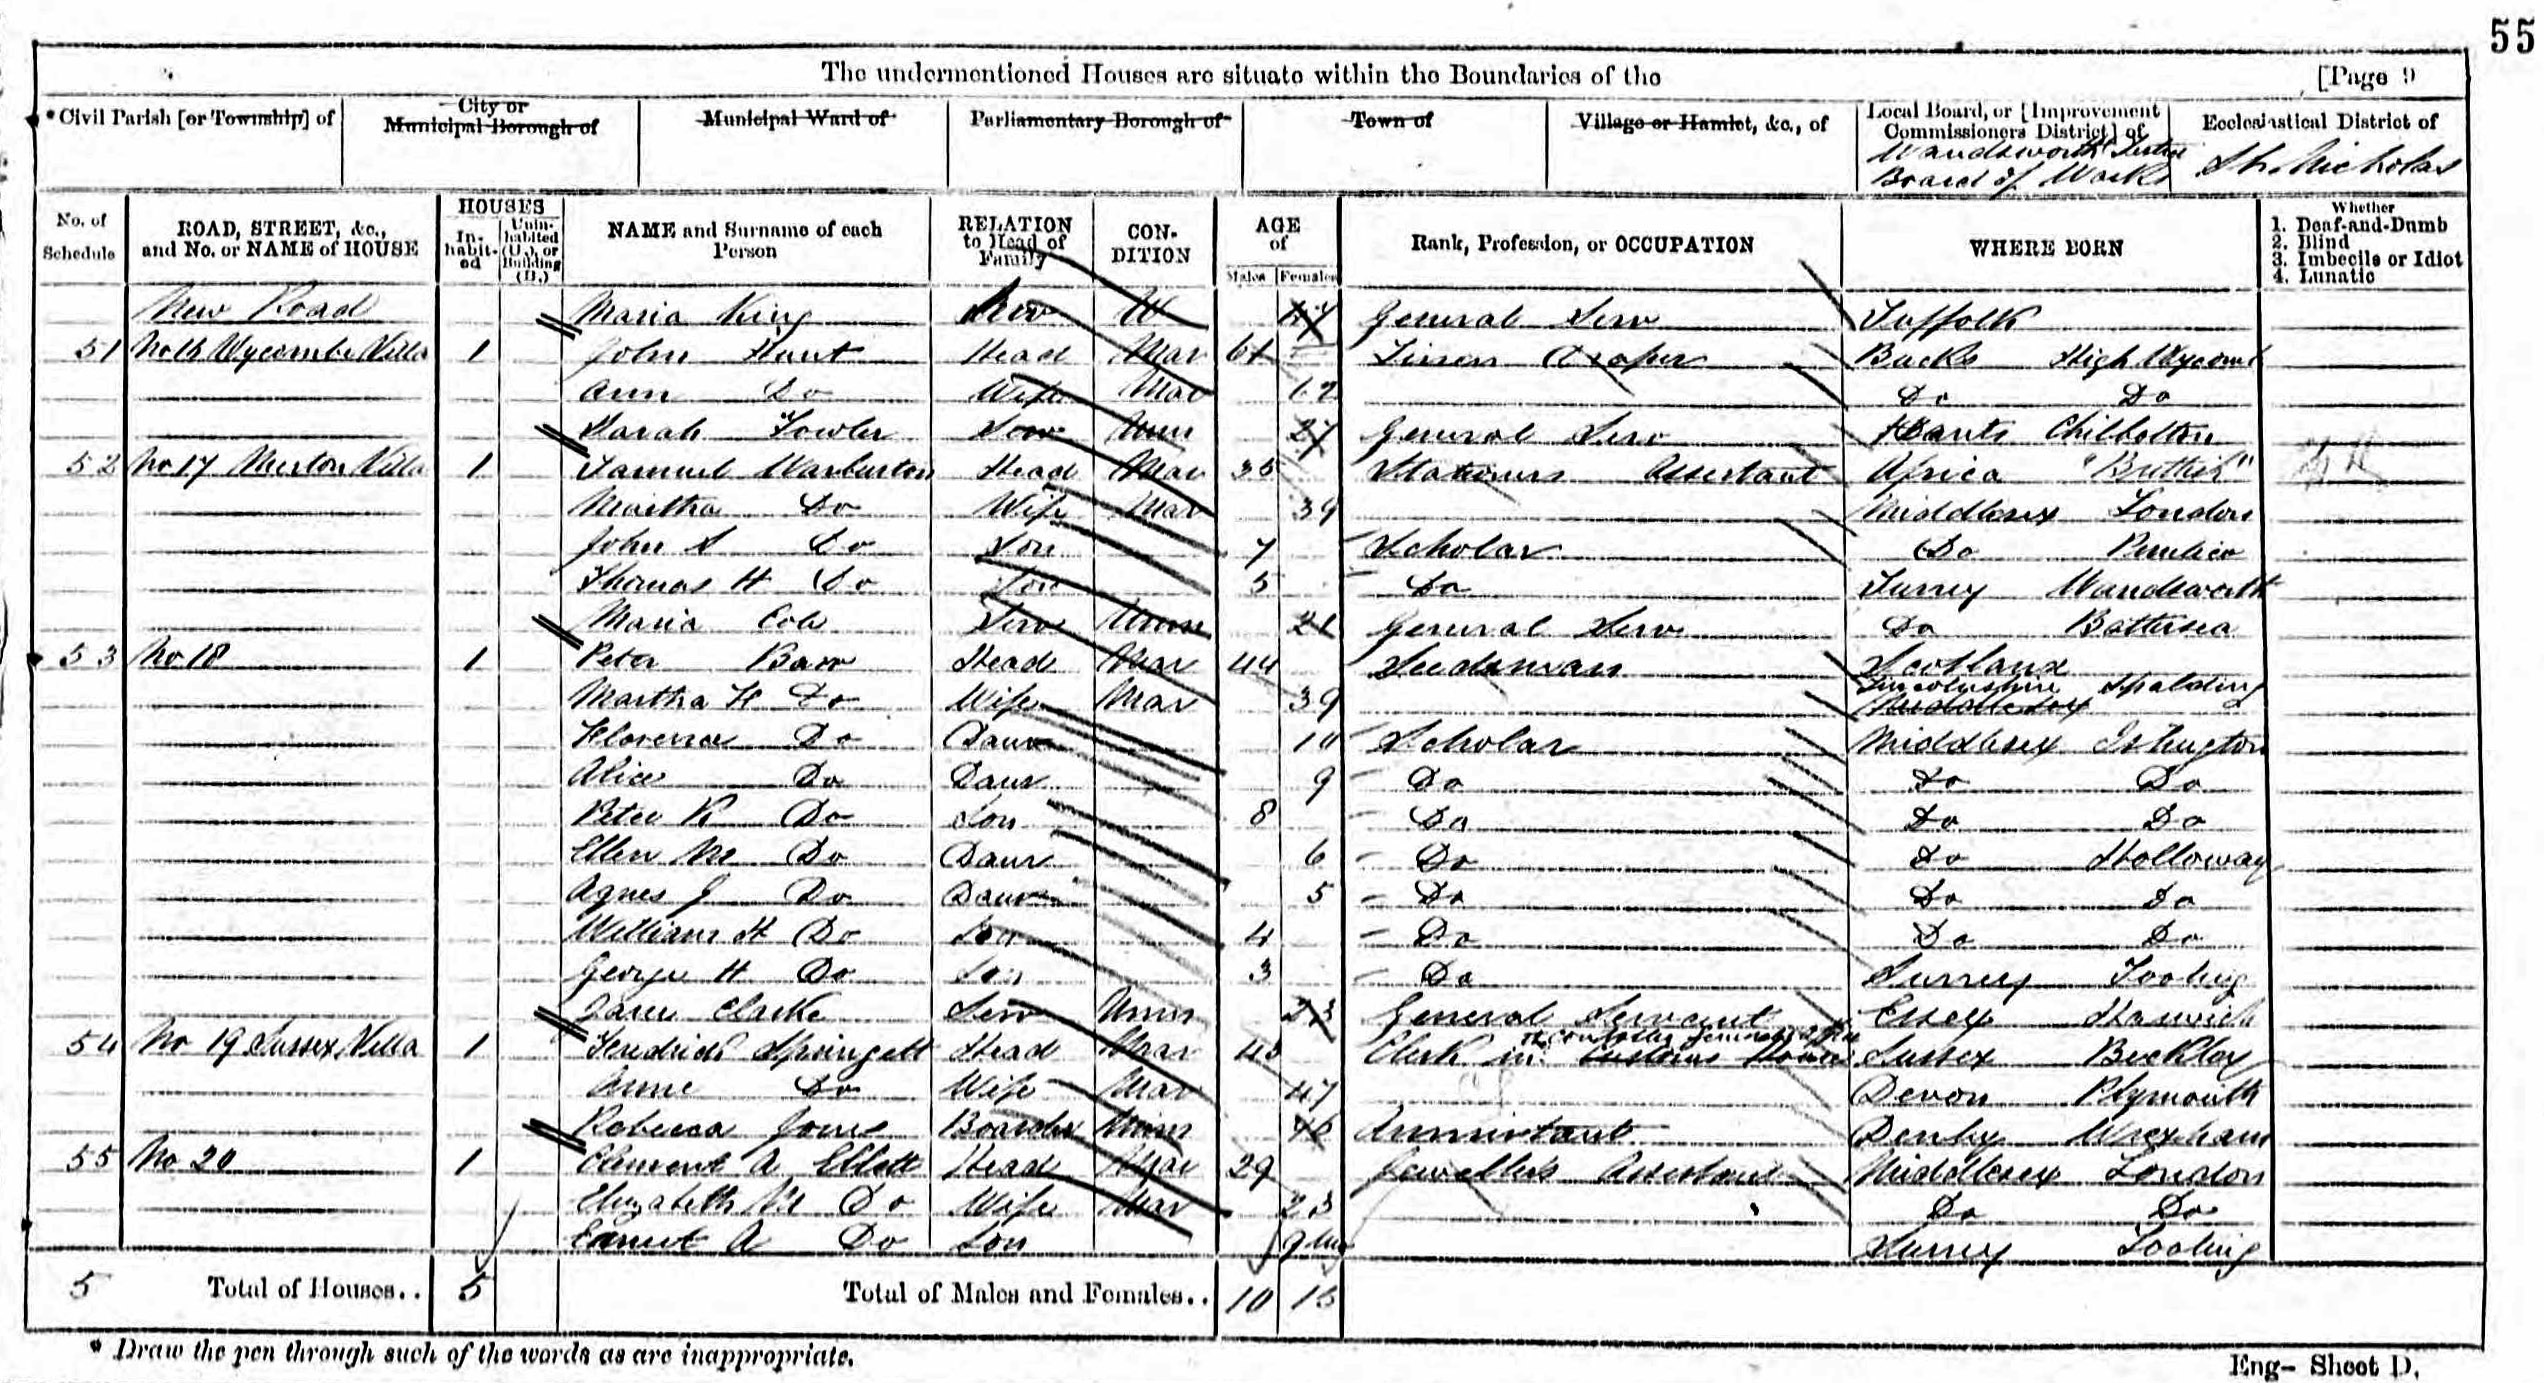 55
The undermentioned Houses are situate within the Boundaries of the [Page 9
*Civil Parish [or Township] of
City or Municipal Borough of
Municipal Ward of
Parliamentary Borough of
Town of
Village or Hamlet, &c., of
Local Board, or [Improvement Commissioners District] of
Wandsworth District
Board of Works
Ecclesiastical District of
St. Nicholas
No. of Schedule
ROAD, STREET, &c., and No. or NAME of HOUSE
HOUSES
In-habit-ed
Unin-habited (U.), or Building (B.)
NAME and Surname of each Person
RELATION to Head of Family
CON-DITION
AGE of
Males Females
Rank, Profession, or OCCUPATION
WHERE BORN
Whether
1. Deaf-and-Dumb
2. Blind
3. Imbecile or Idiot
4. Lunatic
New Road Maria King Serv W General Serv Suffolk
51 No 16 Wycombe Villa 1 John Hunt Head Mar 61 Linen Draper Bucks High Wycomb
Ann Do Wife Mar 62 Do Do
Sarah Fowler Serv Unm 27 General Serv Hants Chilbolton
52 No 17 Merton Villa 1 Samuel Warburton Head Mar 35 Stationers Assistant Africa "Brittish"
Martha Do Wife Mar 39 Middlesex London
John S Do Son 7 Scholar Do Pimlico
Thomas H Do Son 5 Do Surrey Wandsworth
Maria Cole Serv Unm 21 General Serv Do Battersea
53 No 18 1 Peter Barr Head Mar 44 Seedsman Scotland
Martha H Do Wife Mar 39 Lincolnshire Spalding Middlesex
Florence Do Daur 10 Scholar Middlesex Islington
Alice Do Daur 9 Do Do Do
Peter R Do Son 8 Do Do Do
Ellen M Do Daur 6 Do Do Holloway
Agnes J Do Daur 5 Do Do Do
William H Do Son 4 Do Do Do
George H Do Son 3 Do Surrey Tooting
Jane Clarke Serv Unm 23 General Servant Essex Harwich
54 No 19 Sussex Villa 1 Fredrick Springett Head Mar 45 Clerk in Customs House Sussex Beckley
Anne Do Wife Mar 47 Devon Plymouth
Rebecca Jones Boarder Unm 46 Annuitant Denby Wrexham
55 No 20 1 Clement A Ellett Head Mar 29 Jewellers Assistant Middlesex London
Elizabeth M Do Wife Mar 23 Do Do
Ernest A Do Son 9 Mo Surrey Tooting
5 Total of Houses.. 5 Total of Males and Females.. 10 15
* Draw the pen through such of the words as are inappropriate.
Eng- Sheet D.